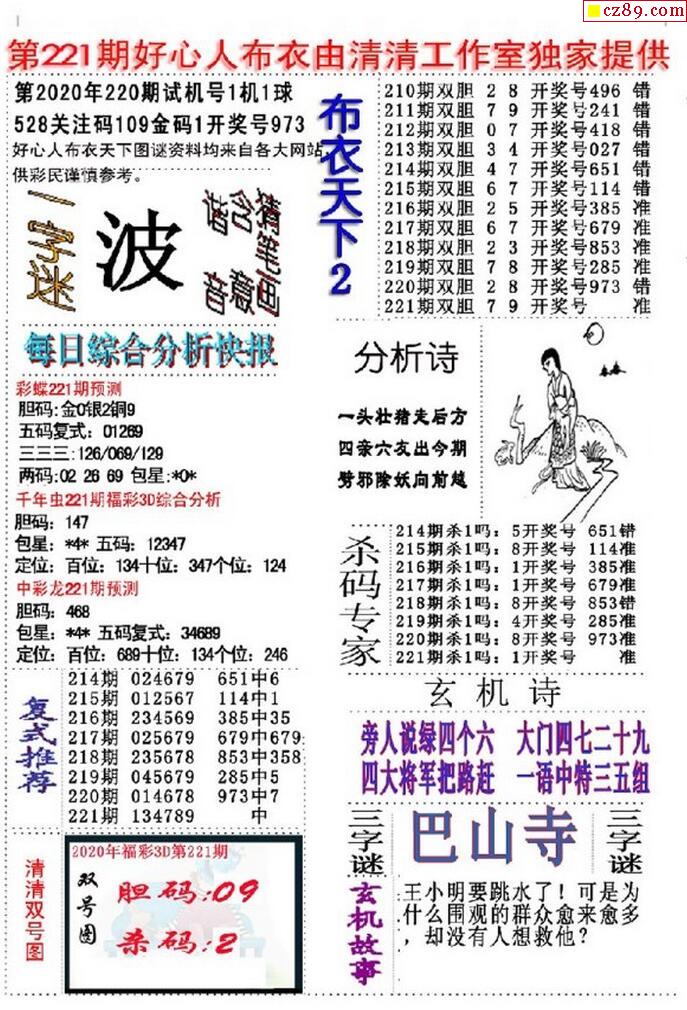 cz89.com
第221期好心人布衣由清清工作室独家提供
第2020年220期试机号1机1球
528关注码109金码1开奖号973
好心人布衣天下图谜资料均来自各大网站,
供彩民谨慎参考。
一字迷
波
谐音
含意
猜笔画
每日综合分析快报
彩蝶221期预测
胆码:金0银2铜9
五码复式: 01269
三三三:126/069/129
两码:02 26 69 包星:*0*
千年虫221期福彩3D综合分析
胆码: 147
包星: *4* 五码: 12347
定位: 百位: 134十位: 347个位: 124
中彩龙221期预测
胆码: 468
包星: *4* 五码复式: 34689
定位: 百位: 689十位: 134个位: 246
复式推荐
214期 024679 651中6
215期 012567 114中1
216期 234569 385中35
217期 025679 679中679
218期 235678 853中358
219期 045679 285中5
220期 014678 973中7
221期 134789 中
清清双号图
2020年福彩3D第221期
双号图
胆码:09
杀码:2
布衣天下2
210期双胆 2 8 开奖号496 错
211期双胆 7 9 开奖号241 错
212期双胆 0 7 开奖号418 错
213期双胆 3 4 开奖号027 错
214期双胆 4 7 开奖号651 错
215期双胆 6 7 开奖号114 错
216期双胆 2 5 开奖号385 准
217期双胆 6 7 开奖号679 准
218期双胆 2 3 开奖号853 准
219期双胆 7 8 开奖号285 准
220期双胆 2 8 开奖号973 错
221期双胆 7 9 开奖号 准
分析诗
一头壮猪走后方
四亲六友出今期
劈邪除妖向前越
杀码专家
214期杀1吗: 5开奖号 651错
215期杀1吗: 8开奖号 114准
216期杀1吗: 1开奖号 385准
217期杀1吗: 1开奖号 679准
218期杀1吗: 8开奖号 853错
219期杀1吗: 4开奖号 285准
220期杀1吗: 8开奖号 973准
221期杀1吗: 1开奖号 准
玄机诗
旁人说绿四个六 大门四七二十九
四大将军把路赶 一语中特三五组
三字谜
巴山寺
三字谜
玄机故事
王小明要跳水了! 可是为
什么围观的群众愈来愈多
, 却没有人想救他?